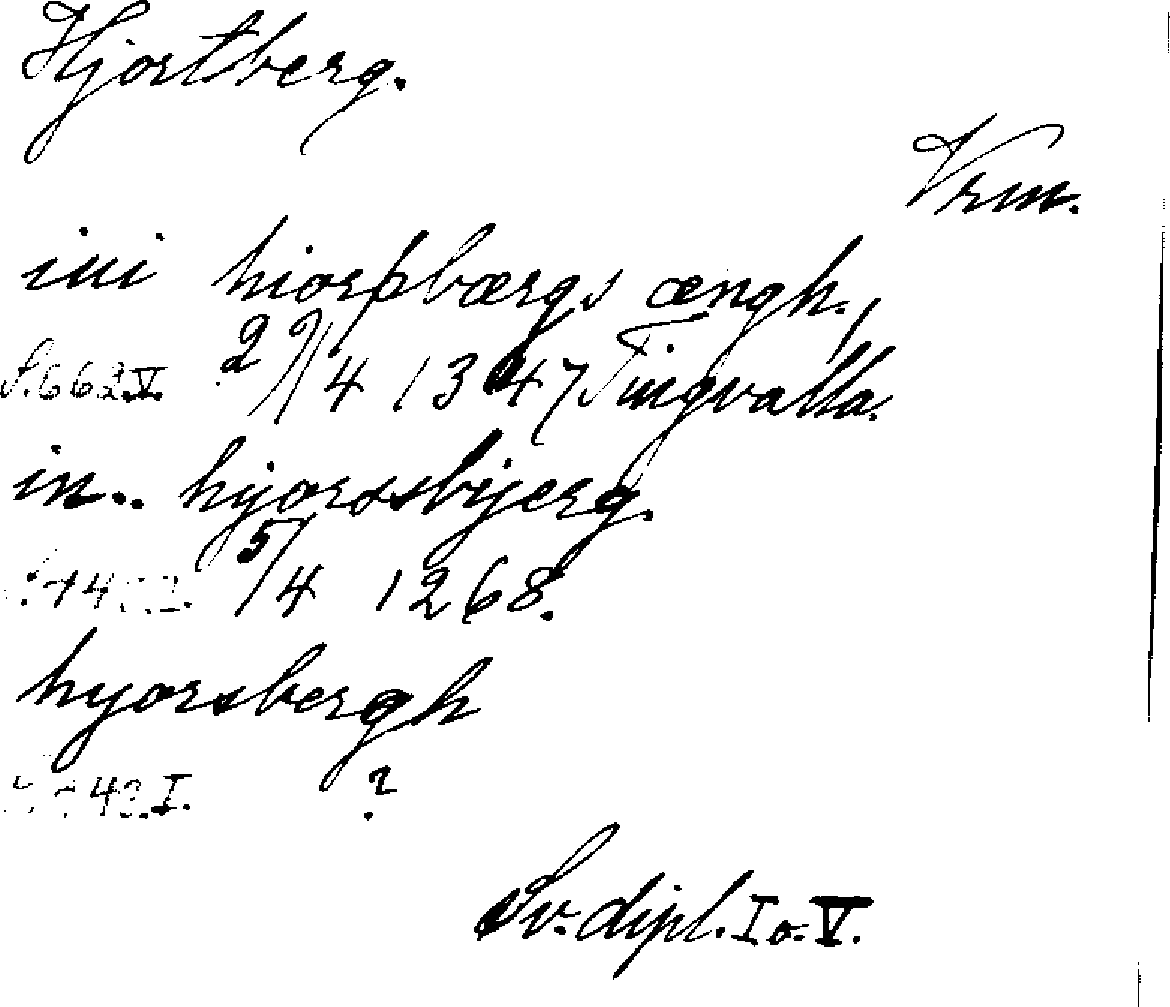 Hjortberg.
Vrm.
ini hiorþbærgs ængh.,
S. 662 V. 29/4 1347 Tingvalla.
in.. hjorssbjerg.
5/4 1268.
hyorsbergh
I. ?
Sv. dipl. I o. V.